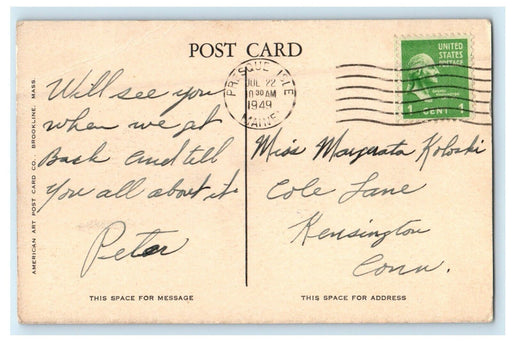 POST CARD
UNITED
STATES
POSTAGE
1 CENT 1
PRESQUE ISLE
JUL 22
10 30 AM
1949
MAINE
Will see you
when we get
Back and tell
you all about it
Peter
Miss Koloski
Cole Lane
Kensington
Conn.
AMERICAN ART POST CARD CO., BROOKLINE, MASS.
THIS SPACE FOR MESSAGE
THIS SPACE FOR ADDRESS